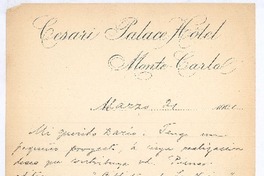 Cesari Palace Hôtel
Monte Carlo
Marzo 21
Mi querido Darío. Tengo un
pequeño proyecto, à cuya realización
deseo que contribuya ud.